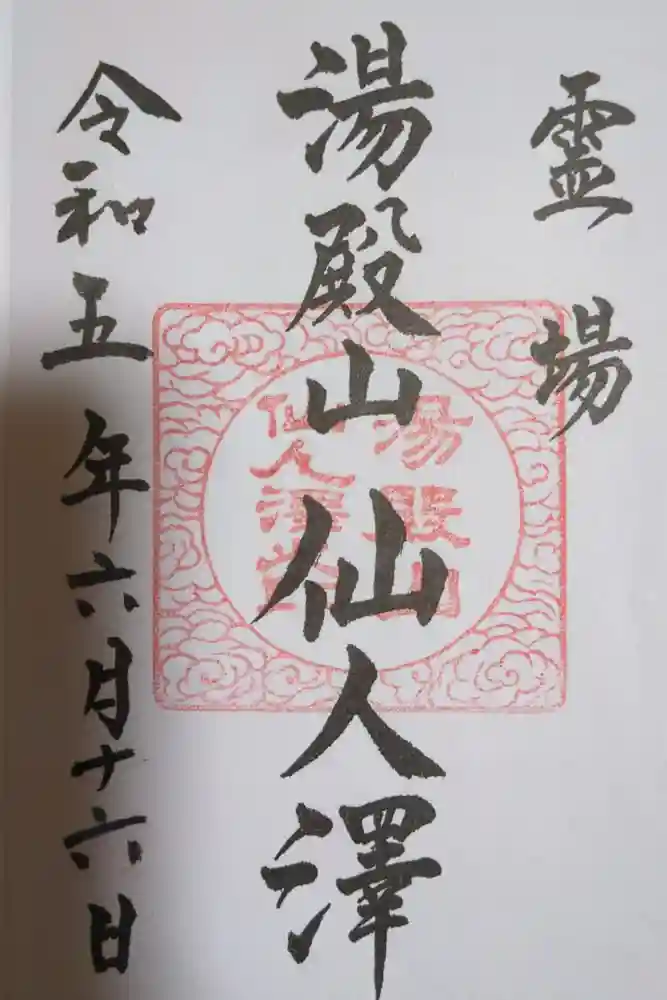 霊場
湯殿山仙人澤
湯殿山
仙人澤堂
令和五年六月十六日